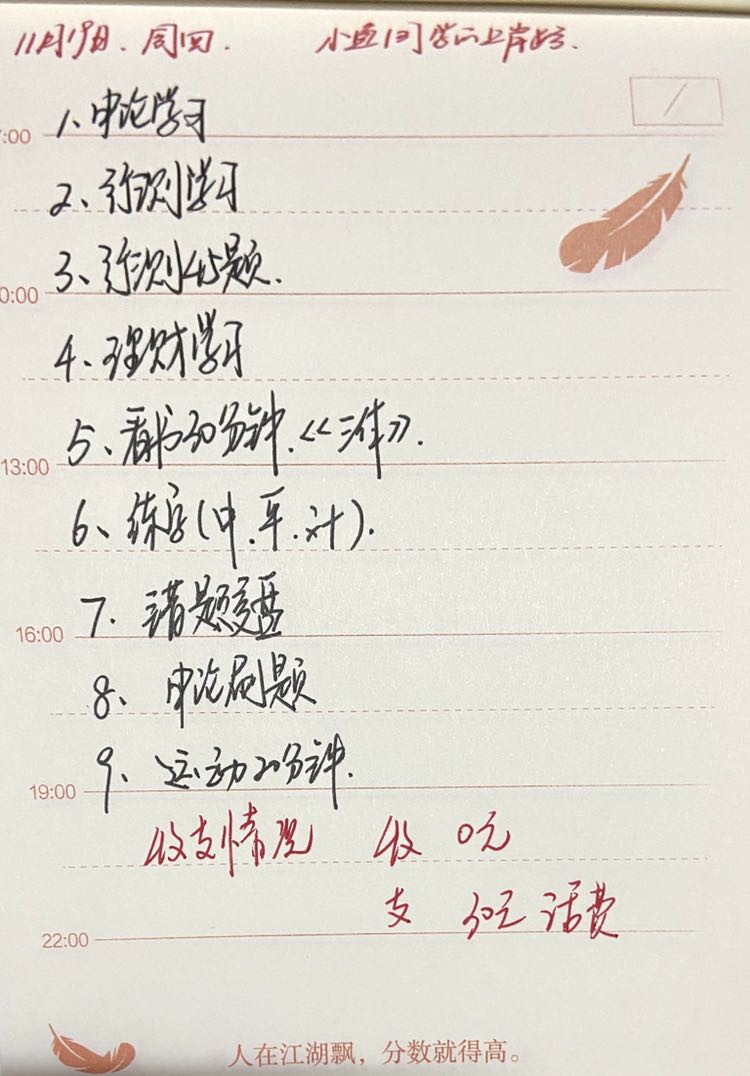 11月19日. 周四. 小鱼同学の上岸路.
7:00
1、申论学习
2、行测学习
3、行测45题.
0:00
4、理财学习
5、看书30分钟.《三体》.
13:00
6、练字(中.平.对).
7. 错题复盘
16:00
8、申论刷题
9、运动20分钟.
19:00
收支情况 收 0元
支 30元 话费
22:00
人在江湖飘，分数就得高。